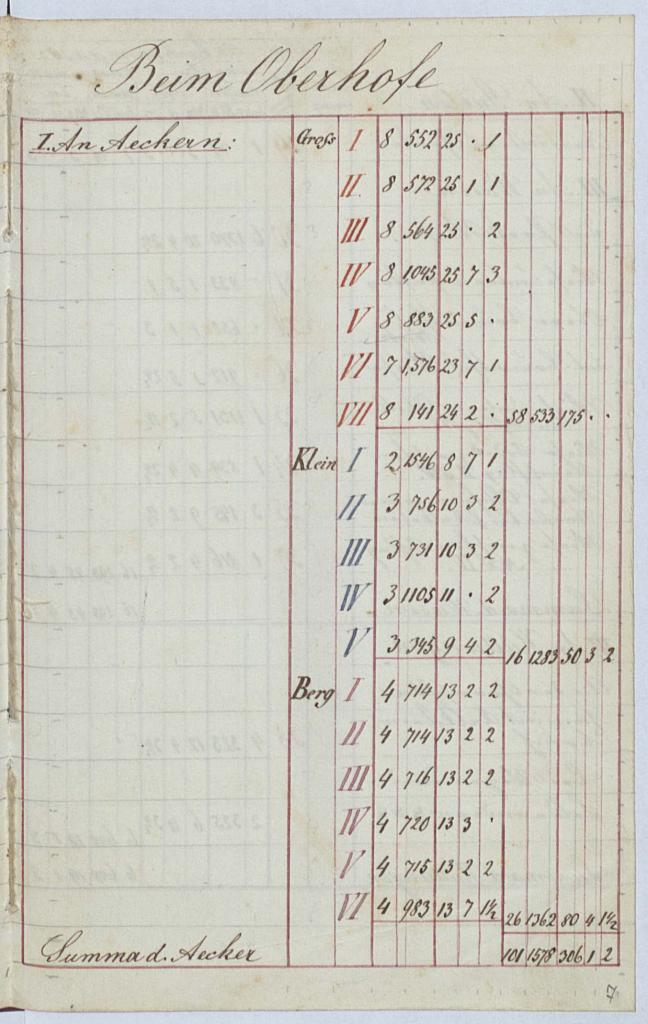 Beim Oberhofe
I. An Aeckern: Gross I 8 552 25 · 1
II 8 572 25 1 1
III 8 564 25 · 2
IV 8 1045 25 7 3
V 8 883 25 5 ·
VI 7 1,576 23 7 1
VII 8 141 24 2 · 58 533 175 · ·
Klein I 2 1546 8 7 1
II 3 756 10 3 2
III 3 731 10 3 2
IV 3 1105 11 · 2
V 3 345 9 4 2 16 1283 50 3 2
Berg I 4 714 13 2 2
II 4 714 13 2 2
III 4 716 13 2 2
IV 4 720 13 3 ·
V 4 715 13 2 2
VI 4 983 13 7 1½ 26 1362 80 4 1½
Summa d. Aecker 101 1578 306 1 2
7